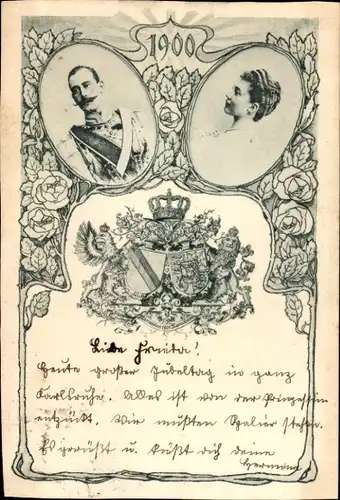 1900
Liebe Frieda!
Heute großer Jubeltag in ganz
Karlsruhe. Alles ist von der Prinzessin
entzückt. Wir mußten Spalier stehen.
Es grüßt u. küßt dich deine
Hermine